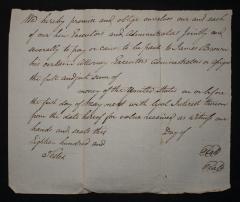 We hereby promise and oblige ourselves our and each
of our heirs Executors and Administrators jointly and
severally to pay or cause to be paid to James Brown
his certain Attorney Executors Administrators or Assigns
the full and just sum of
money of the United States on or before
the first day of May next with Lawful Interest thereon
from the date hereof for value received as witness our
hands and seals this Day of
Eighteen hundred and
Testes
Seal
Seal